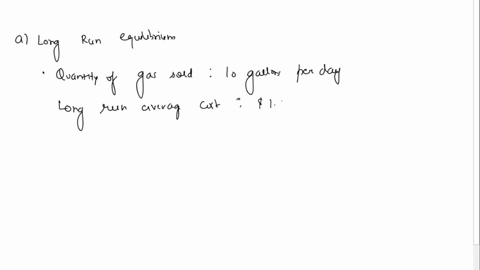 a) Long Run equilibrium
• Quantity of gas sold : 10 gallon per day
Long run averag cost : $1.